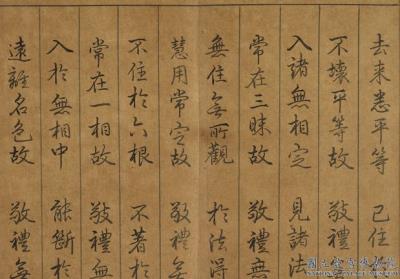 去来悉平等　已住
不壞平等故　敬禮
入諸無相定　見諸法
常在三昧故　敬禮無
無住無所觀　於法得
慧用常定故　敬禮無
不住於六根　不著於
常在一相故　敬禮無
入於無相中　能斷於
遠離名色故　敬禮無